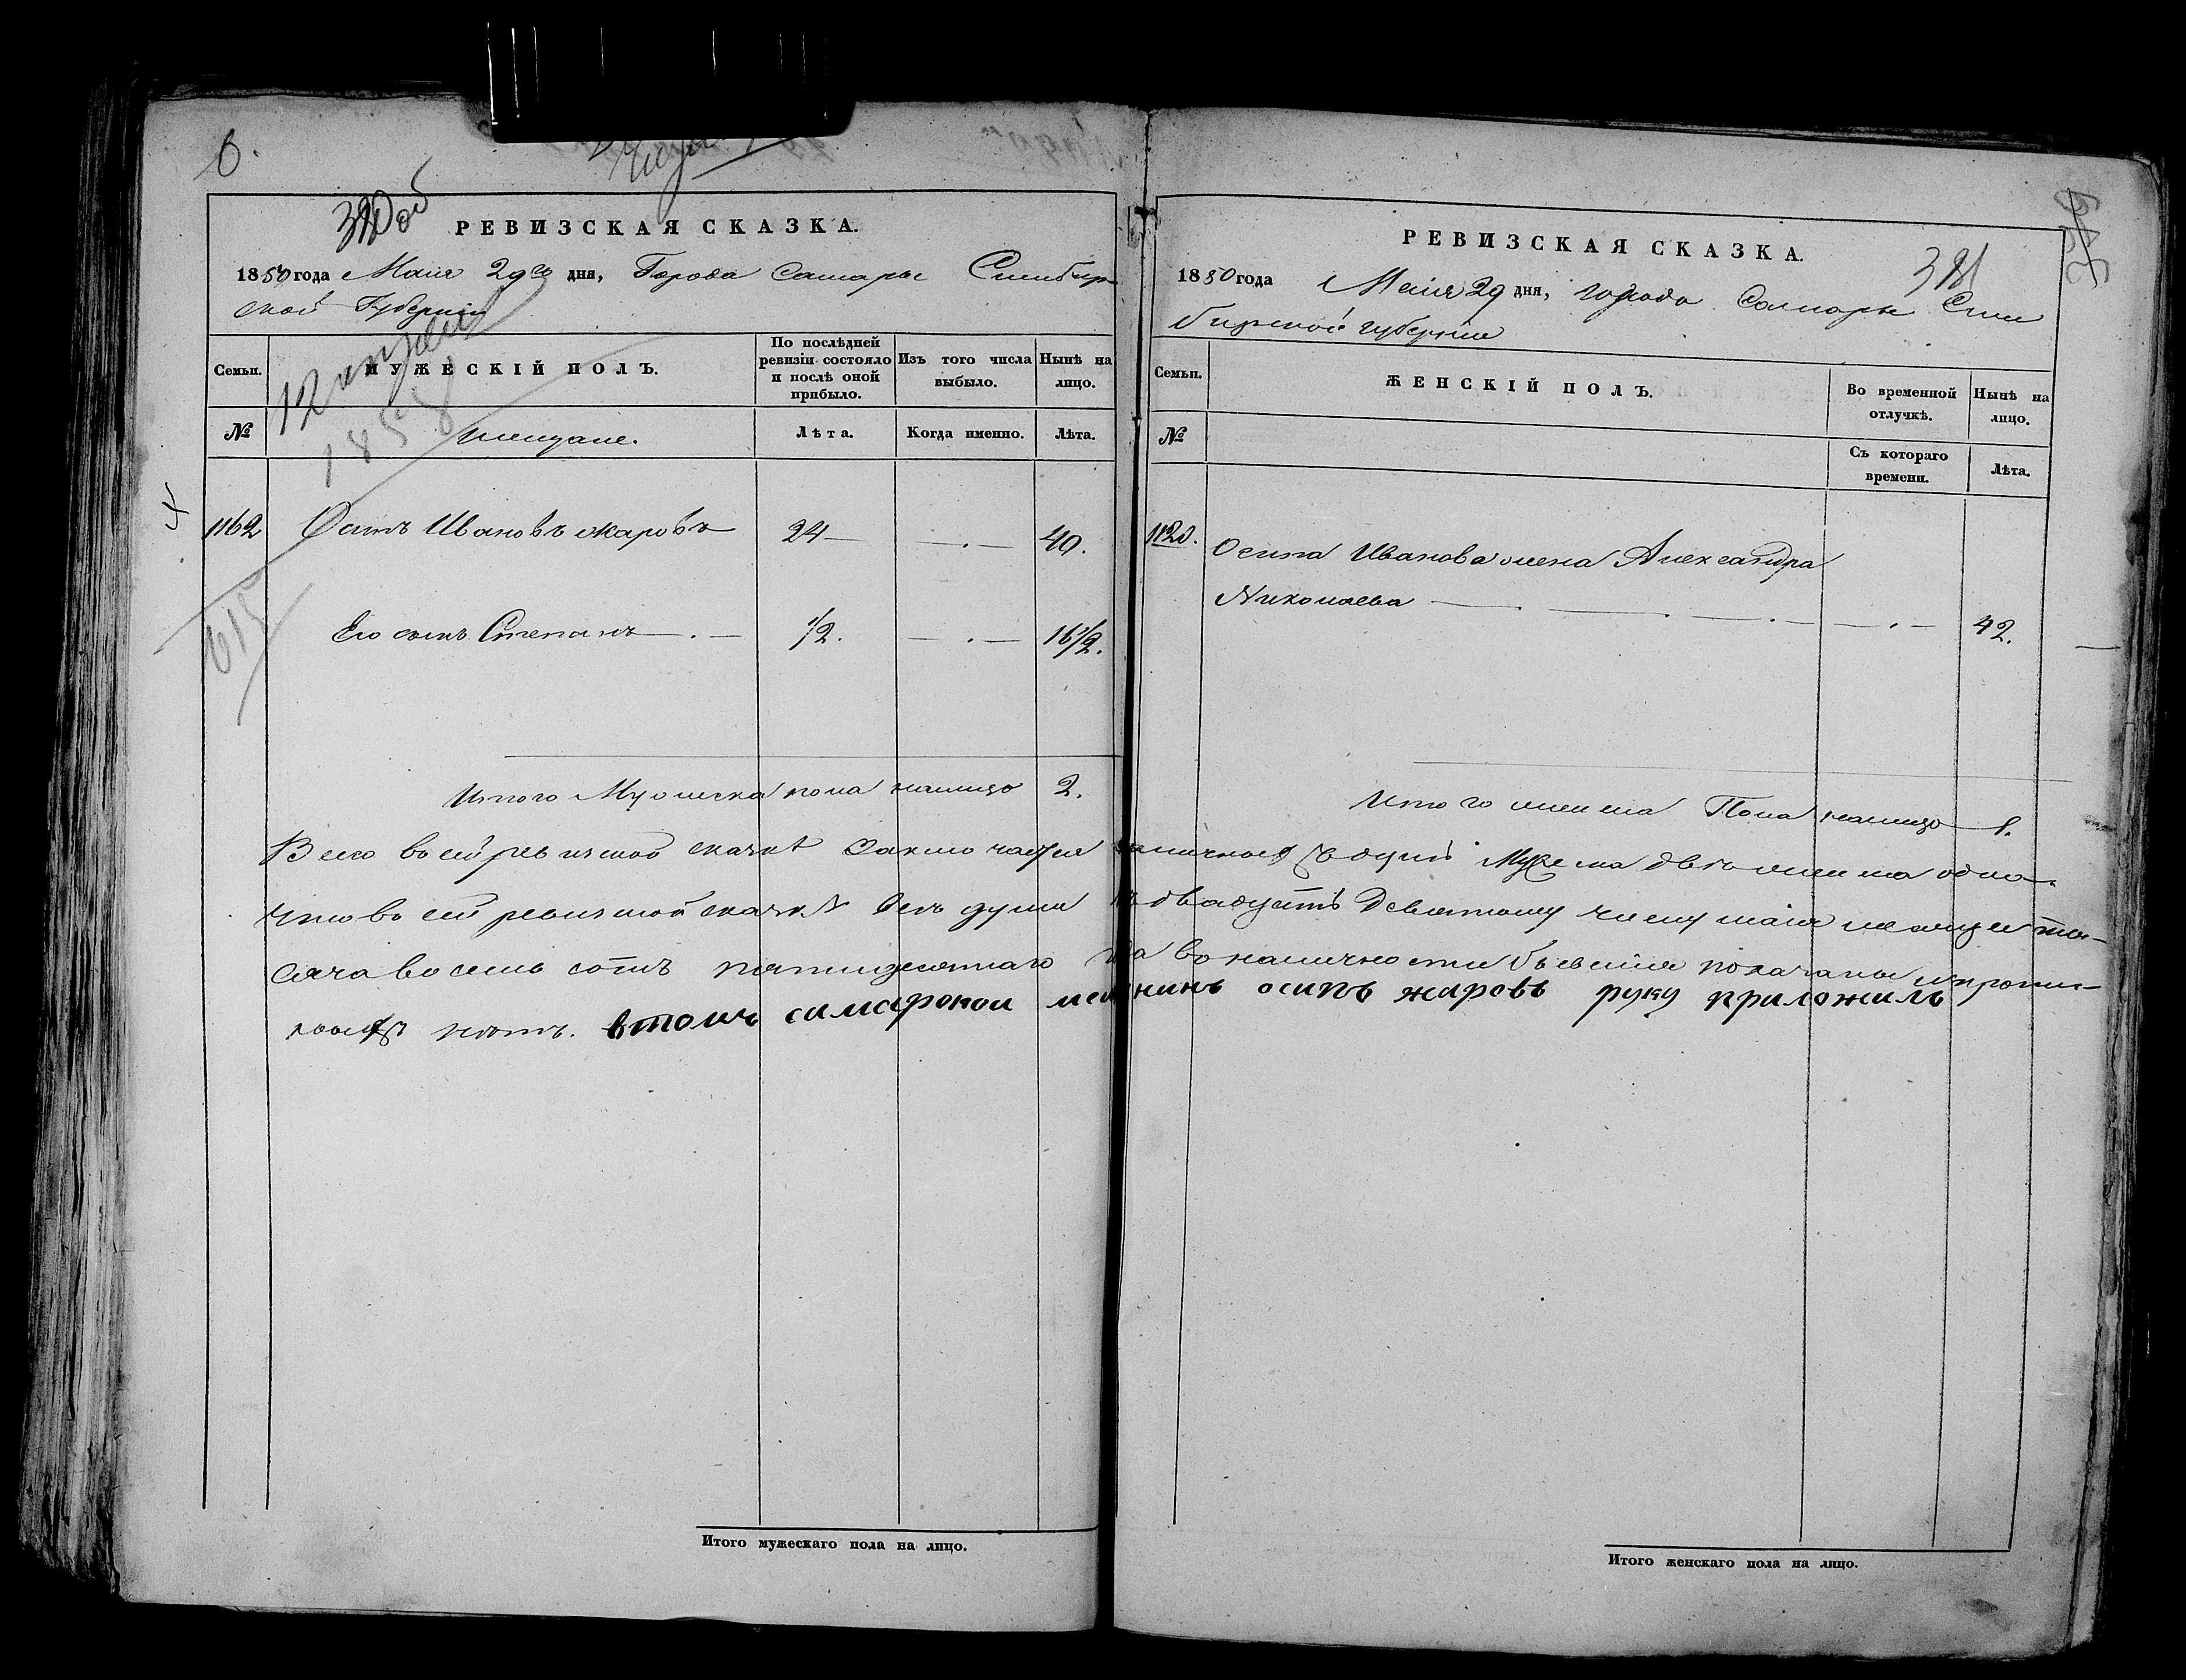 6.
380 об
РЕВИЗСКАЯ СКАЗКА.
1850 года Маия 29го дня, Города Самары Симбир-
ской Губернии
Семьи.
МУЖЕСКІЙ ПОЛЪ.
По послѣдней ревизіи состояло и послѣ оной прибыло.
Изъ того числа выбыло.
Нынѣ на лицо.
12
1858
№
мещане.
Лѣта.
Когда именно.
Лѣта.
1162
Осипъ Ивановъ Жаровъ
24
40.
615
Его сынъ Степанъ
1/2.
16 1/2.
Итого Мужеска пола налицо 2.
РЕВИЗСКАЯ СКАЗКА.
381
1850 года Маия 29 дня, города Самары Сим
бирской губернии
Семьи.
ЖЕНСКІЙ ПОЛЪ.
Во временной отлучкѣ.
Нынѣ на лицо.
№
Съ котораго времени.
Лѣта.
Осипа Иванова жена Александра
Николаева
42.
Итого женска Пола налицо 1.
Всего во сей ревизкой сказке заключается наличных душъ Мужеска две женска одна.
Что во сей ревизкой сказке все души к двадцать девятому числу маия месяца ты-
сяча восемь сотъ пятидесятаго года во наличности бывшия показаны и пропи-
нетъ. в томъ самарской мещнинъ осипъ жаровъ руку приложилъ
Итого мужескаго пола на лицо.
Итого женскаго пола на лицо.